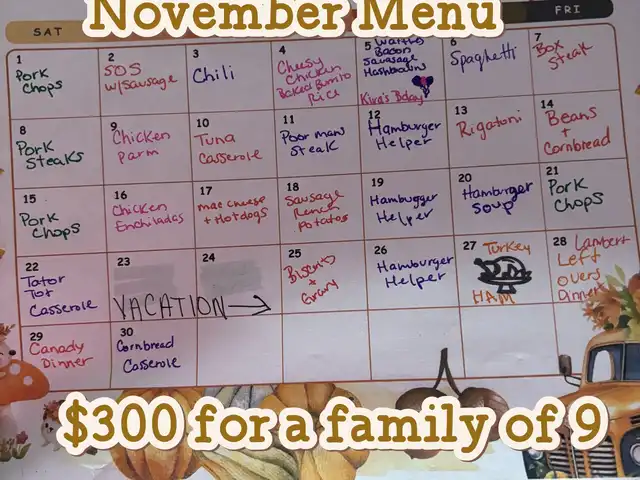 November Menu
SAT
FRI
1
Pork
Chops
2
SOS
w/Sausage
3
Chili
4
Cheesy
Chicken
Baked Burrito
Rice
5
Waffles
Bacon
Sausage
Hashbrowns
Kira's Bday
6
Spaghetti
7
Box
Steak
8
Pork
Steaks
9
Chicken
Parm
10
Tuna
Casserole
11
Poor mans
Steak
12
Hamburger
Helper
13
Rigatoni
14
Beans
+
Cornbread
15
Pork
Chops
16
Chicken
Enchiladas
17
mac cheese
+ Hotdogs
18
Sausage
Ranch
Potatos
19
Hambugger
Helper
20
Hamburger
Soup
21
Pork
Chops
22
Tator
Tot
Casserole
23
24
VACATION
25
+
Gravy
26
Hamburger
Helper
27
Turkey
HAM
28
Lambert
Left
overs
29
Canady
Dinner
30
Cornbread
Casserole
$300 for a family of 9